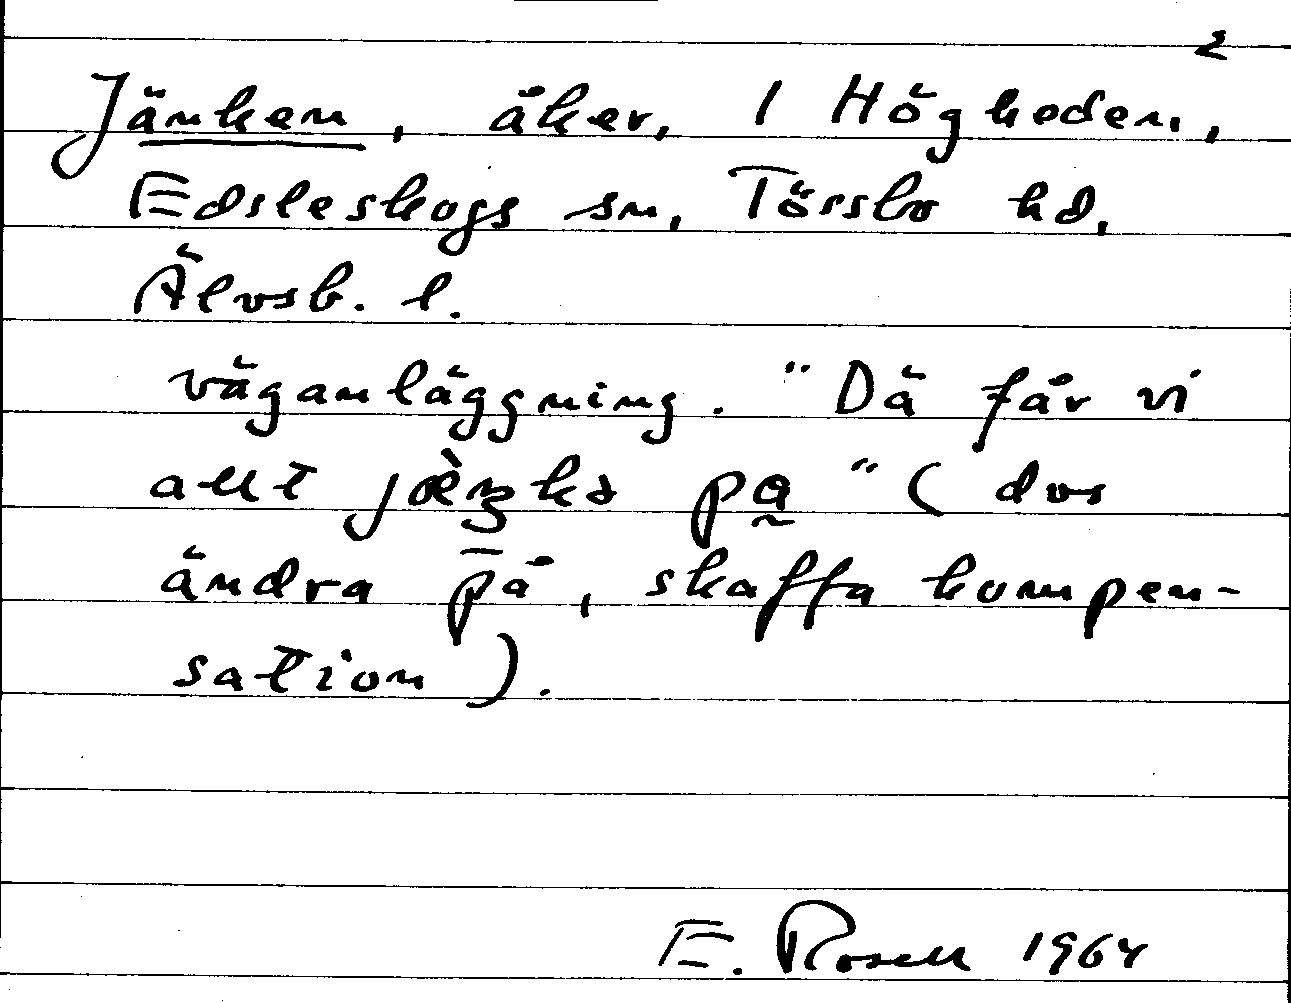 2
Jänken, åker, 1 Högheden,
Edsleskogs sn, Tössbo hd,
Älvsb. l.
väganläggning. "Dä får vi
allt jæ̀ŋka pa̰" (dvs
ändra på, skaffa kompen-
sation).
E. Rosell 1964